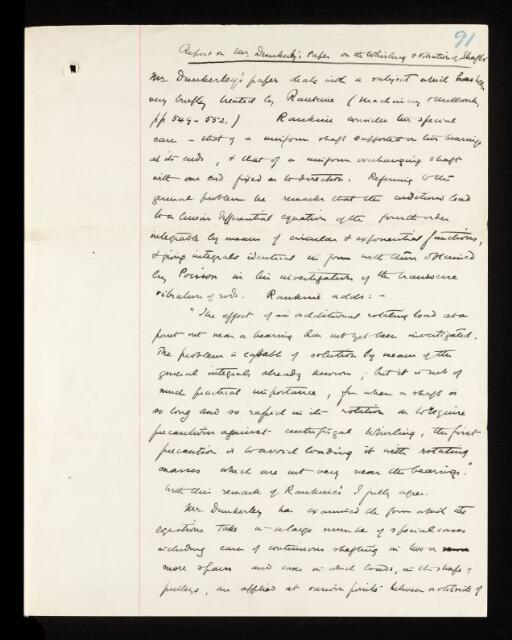 91
Report on Mr. Dunkerley's Paper on the Whirling & Vibration of Shafts
Mr Dunkerley's paper deals with a subject which has been
very briefly treated by Rankine (Machinery & Millwork,
pp 549-552.) Rankine considers two special
cases - that of a uniform shaft supported on two bearings
at its ends, & that of a uniform overhanging shaft
with one end fixed as to direction. Referring to the
general problem he remarks that the conditions lead
to a linear differential equation of the fourth order
integrable by means of circular & exponential functions,
& giving integrals identical in form with those obtained
by Poisson in his investigation of the transverse
vibration of rods. Rankine adds:-
"The effect of an additional rotating load at a
point not near a bearing has not yet been investigated.
The problem is capable of solution by means of the
general integrals already known; but it is not of
much practical importance, for when a shaft is
so long and so rapid in its rotation as to require
precautions against centrifugal whirling, the first
precaution is to avoid loading it with rotating
masses which are not very near the bearings."
With this remark of Rankine's I fully agree.
Mr. Dunkerley has examined the form which the
equations take in a large number of special cases
including cases of continuous shafting in two or
more spans and cases in which loads, in the shape of
pulleys, are applied at various points between or outside of